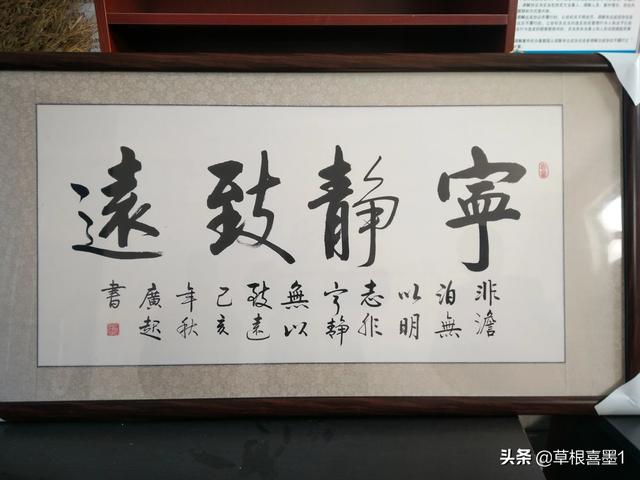 寧靜致遠
非澹
泊無
以明
志非
宁靜
無以
致遠
己亥
年秋
廣起
書
头条 @草根喜墨1